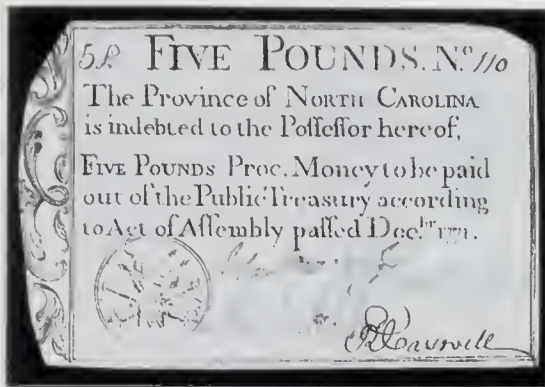 5£ FIVE POUNDS. No. 110
The Province of NORTH CAROLINA
is indebted to the Poſſeſſor hereof,
FIVE POUNDS Proc. Money to be paid
out of the Public Treasury according
to Act of Aſſembly paſſed Decbr. 1771.